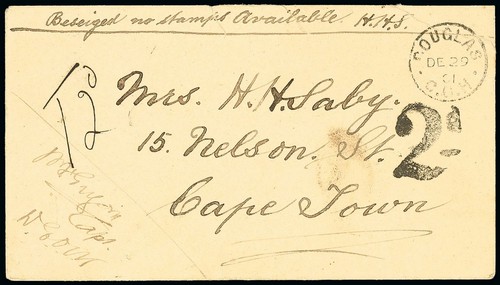 Beseiged no stamps Available H.H.S.
DOUGLAS
DE 29
01
C.G.H
Mrs. H. H. Saby.
15. Nelson. St.
2d
Cape Town
Capt.